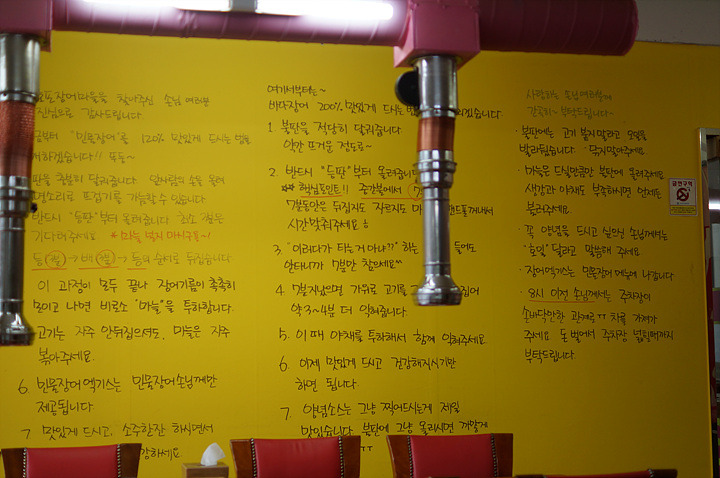 포장어마을을 찾아주신 손님 여러분
진심으로 감사드립니다.
금부터 "민물장어"를 120% 맛있게 드시는 법을
개하겠습니다!! 또둥~
판을 충분히 달궈줍니다. 앞사람의 손을 올려
명소리로 뜨겁기를 가늠할 수 있습니다
반드시 "등판"부터 올려줍니다
기다려주세요 *마늘 넣지 마시구요~!
등 → 배 → 등의 순서로 뒤집습니다
이 과정이 모두 끝나 장어기름이 촉촉히
모이고 나면 비로소 "마늘"을 투하합니다.
고기는 자주 안뒤집으셔도, 마늘은 자주
볶아주세요.
6. 민물장어엑기스는 민물장어손님께만
제공됩니다
7. 맛있게 드시고, 소주한잔 하시면서
강하세요
여기서부터는~
바다장어 200% 맛있게 드시는
1. 불판을 적당히 달궈줍니다
약간 뜨거운 정도로~
2. 반드시 "등판"부터 올려줍니다
** 핵심포인트!! 중간불에서
7분동안은 뒤집지도 자르지도 마 핸드폰꺼내서
시간맞춰주세요!
3. "이러다가 타는거 아냐??" 하는 들어도
안타니까 7분만 참으세요^^
4. 7분지났으면 가위로 고기를 집어
약 3~4분 더 익혀줍니다.
5. 이때 야채를 투하해서 함께 익혀주세요.
6. 이제 맛있게 드시고 건강해지시기만
하면 됩니다.
7. 양념소스는 그냥 찍어드시는게 제일
맛있습니다. 불판에 그냥 올리시면 까맣게
ㅠㅠ
사랑하는 손님여러분께
간곡히~ 부탁드립니다~
· 불판에는 고기 붙지말라고 오일을
발라놨습니다. 닦지말아주세요.
· 마늘은 드실만큼만 불판에 올려주세요.
생강과 야채도 부족하시면 언제든
불러주세요.
· 꼭 양념을 드시고 싶으신 손님께서는
"호일" 달라고 말씀해 주세요.
· 장어엑기스는 민물장어 메뉴에 나갑니다.
· 8시 이전 손님께서는 주차장이
손바닥만한 관계로ㅠㅠ 차를 가져가
주세요. 돈 벌어서 주차장 넓힐때까지
부탁드립니다.
금연구역